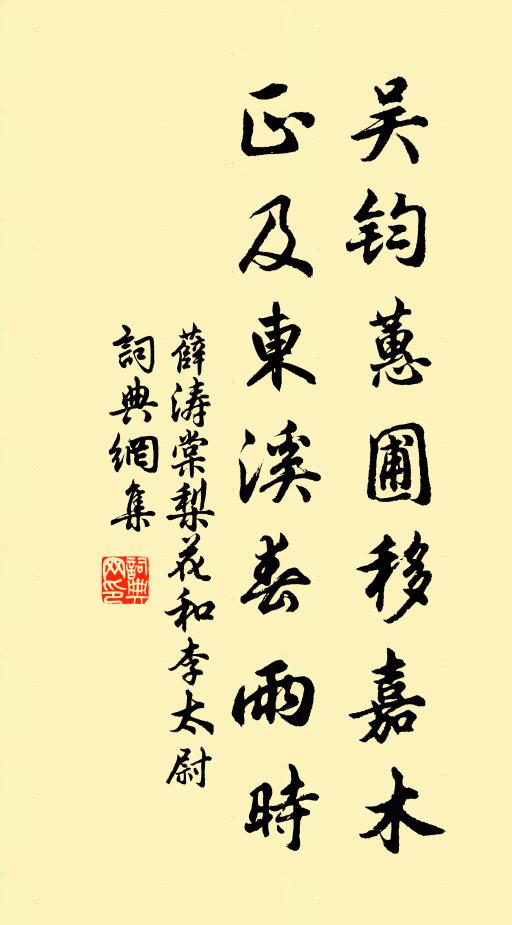 吴鈞蕙圃移嘉木
正及東溪春雨時
薛濤棠梨花和李太尉
詞典網集
詞典网印